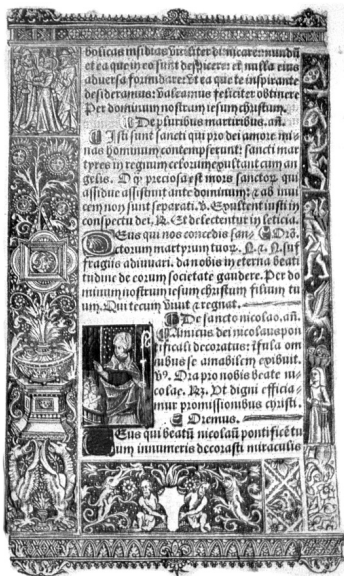 bolicas insidias viriliter dimicare: mundū
et ea que in eo sunt despicere: et nulla eius
aduersa formidare: vt ea que te inspirante
desideramus: valeamus feliciter obtinere
Per dominum nostrum iesum christum.
De pluribus martiribus. añ.
Isti sunt sancti qui pro dei amore mi-
nas hominum contempserunt: sancti mar
tyres in regnum celorum exultant cum an
gelis. O q̄ preciosa est mors sanctoꝝ qui
assidue assistunt ante dominum: ⁊ ab inui
cem non sunt separati. ℣. Exultent iusti in
conspectu dei. ℟. Et delectentur in leticia.
Deus qui nos concedis san- Orō.
ctorum martyrum tuoꝝ. N. ⁊. N. suf
fragiis adiuuari. da nobis in eterna beati
tudine de eorum societate gaudere. Per do
minum nostrum iesum christum filium tu
um. Qui tecum viuit ⁊ regnat.
De sancto nicolao. añ.
Amicus dei nicolaus pon
tificali decoratus: īfula om
nibus se amabilem exibuit.
℣. Ora pro nobis beate ni-
colae. ℟. Vt digni efficia-
mur promissionibus christi.
Oremus.
Deus qui beatū nicolaū pontificē tu
um innumeris decorasti miraculis